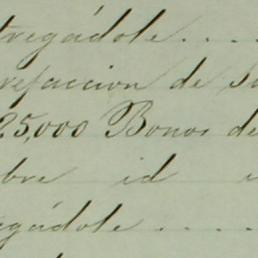 tregádole....
refaccion de Su
25,000 Bonos de
bre id
egádole....